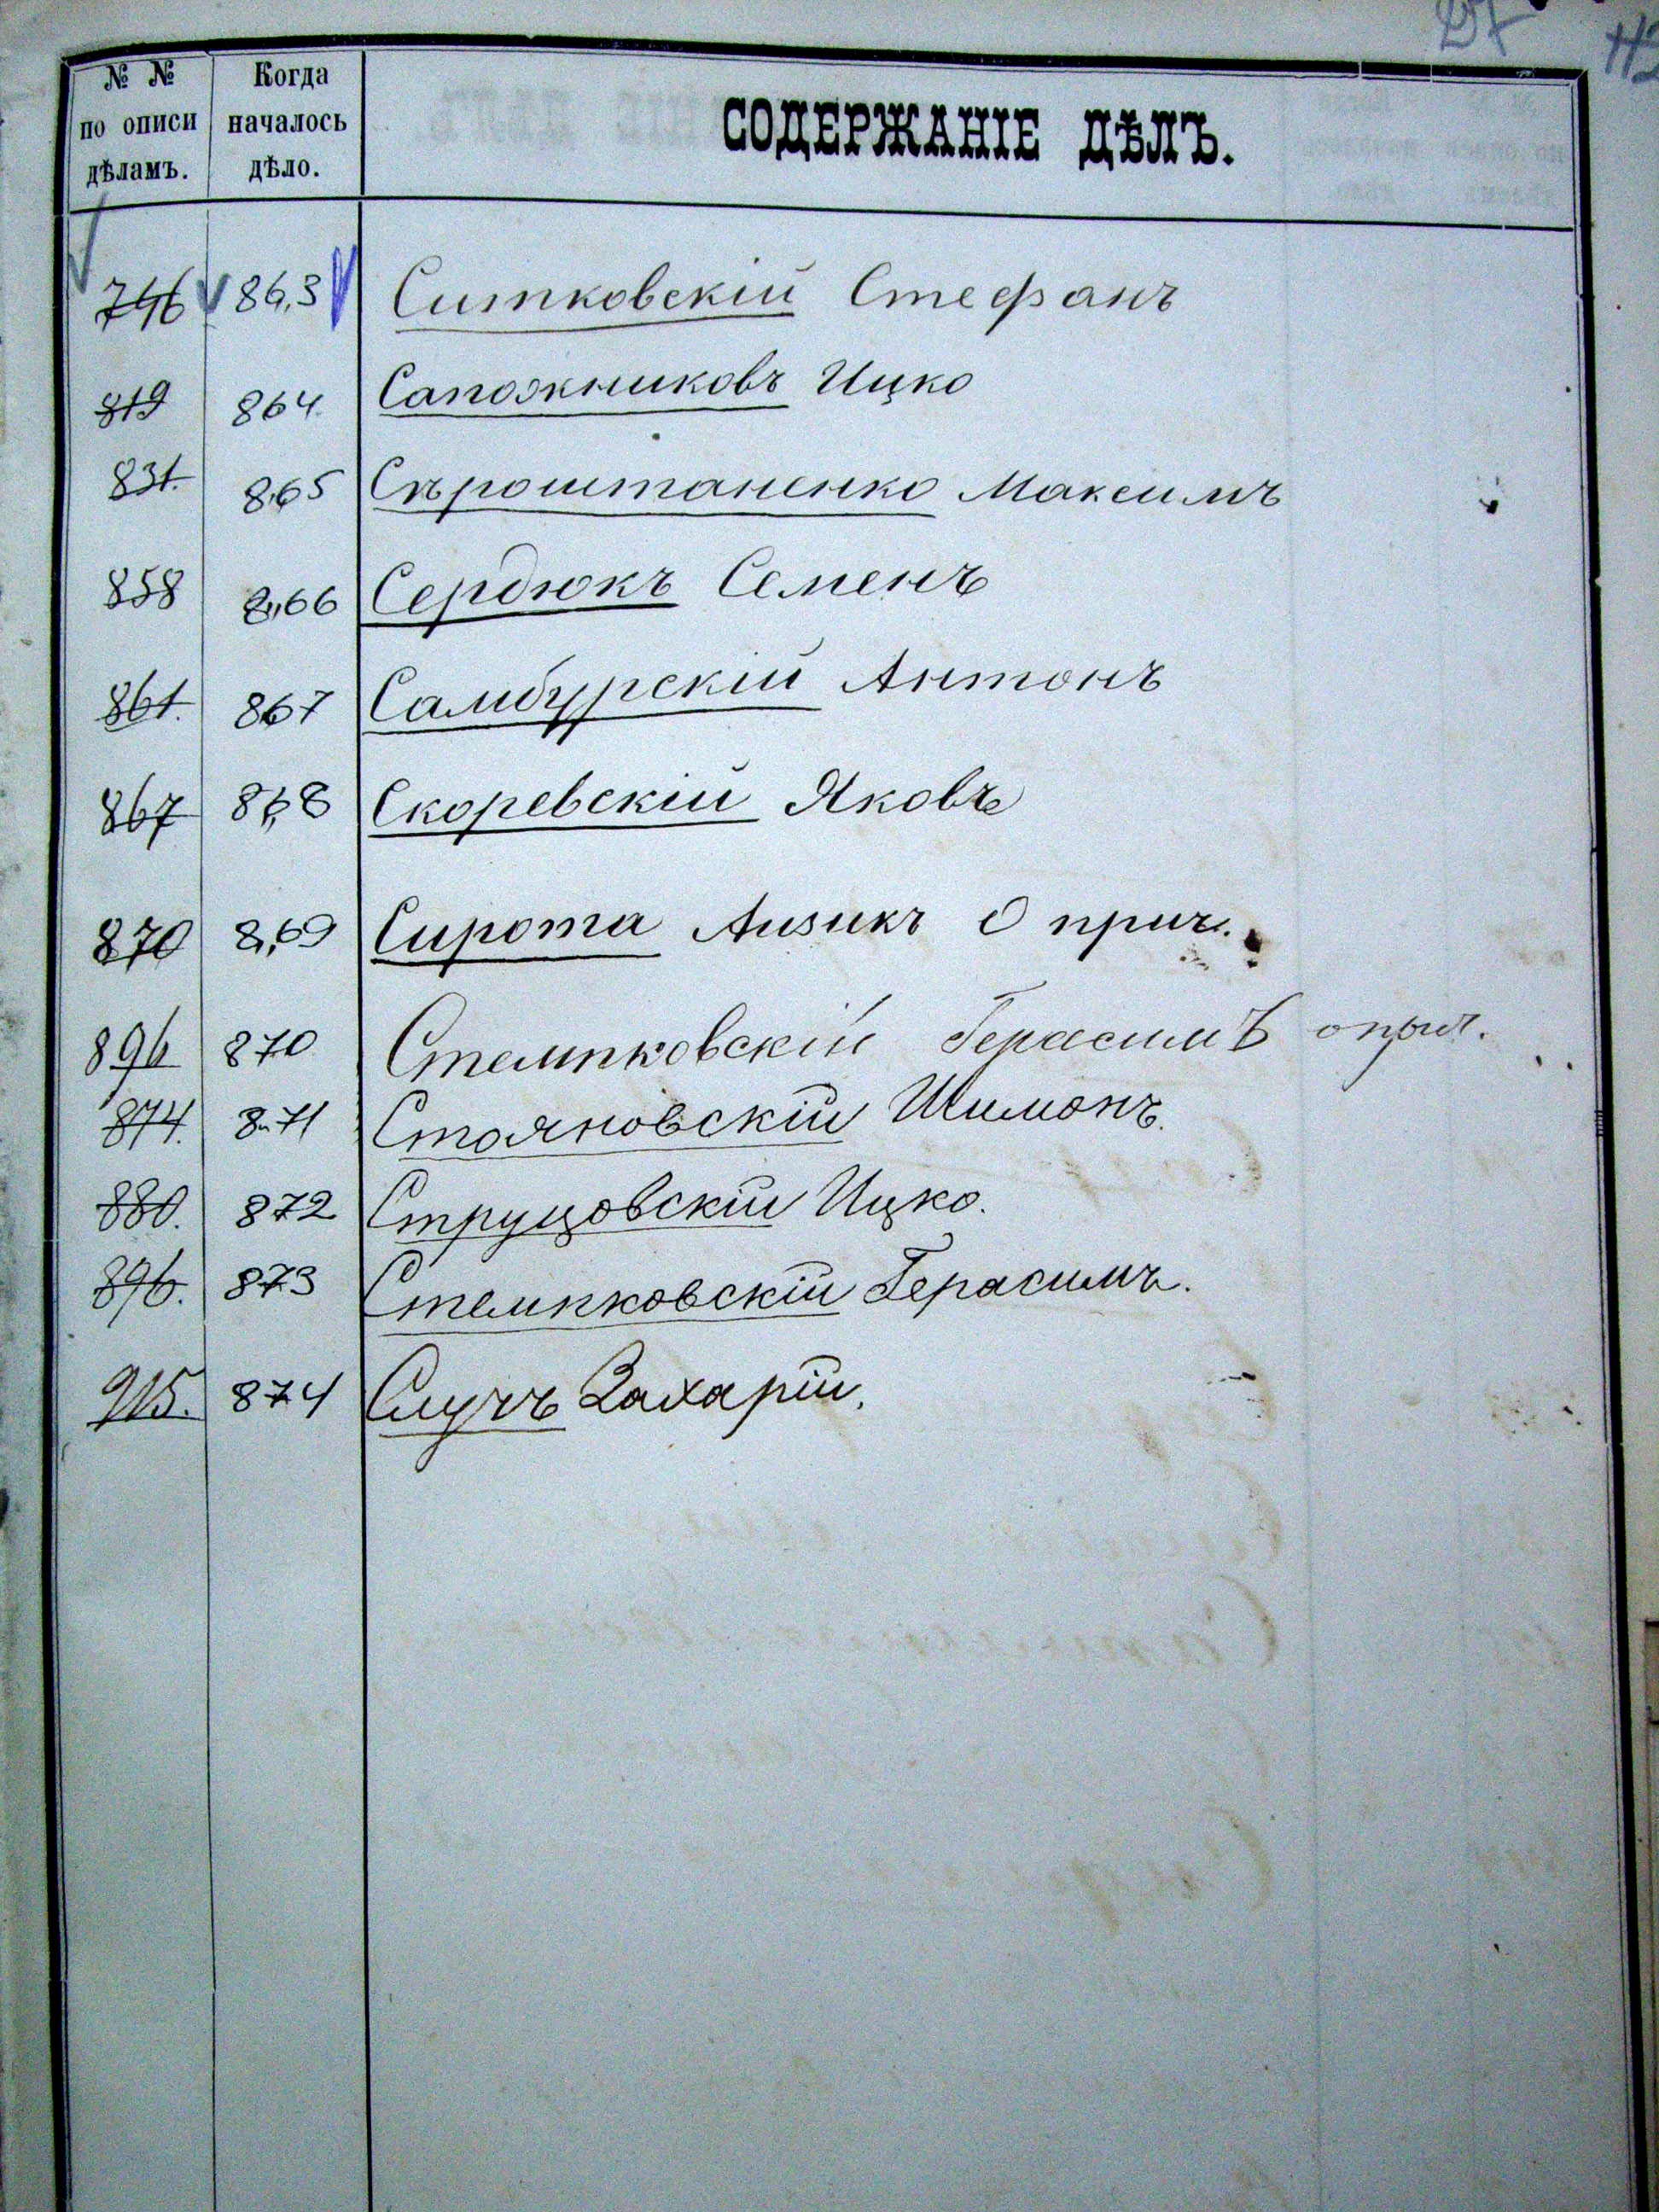 57
№ № Когда
по описи началось СОДЕРЖАНІЕ ДѢЛЪ.
дѣламъ. дѣло.
746 863 Ситковскій Стефанъ
819 864 Сапожниковъ Ицко
831. 865 Сѣроштаненко Максимъ
858 866 Сердюкъ Семенъ
861. 867 Самбурскій Антонъ
867 868 Скоревскій Яковъ
870 869 Сирота Аизикъ О прич.
896 870 Стемпковскій Герасимъ
874. 871 Стояновскій Шимонъ.
880. 872 Струцовскій Ицко.
896. 873 Стемпковскій Герасимъ.
915. 874 Случъ Захарій.